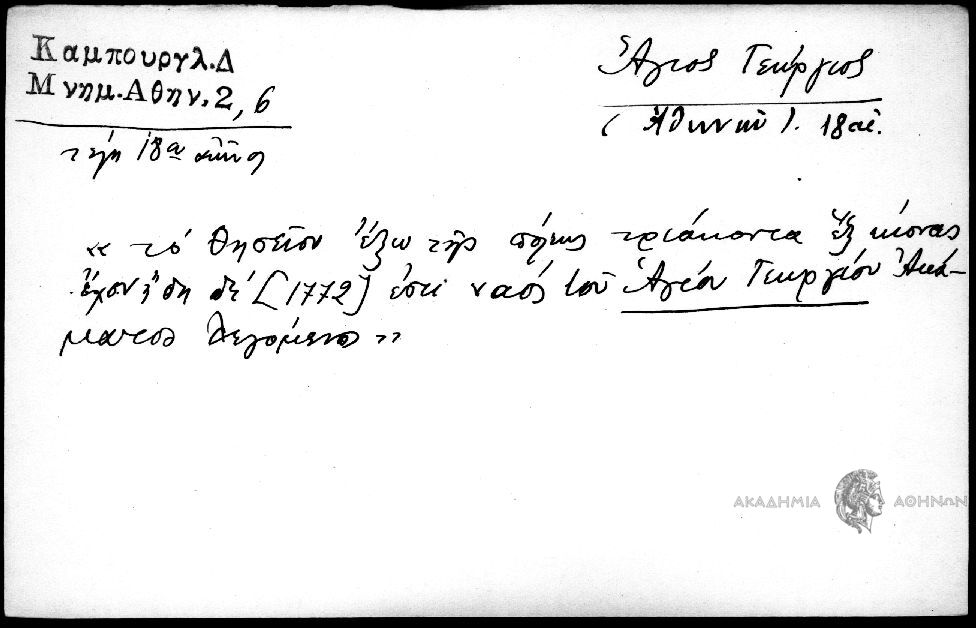 Καμπουργλ.Δ
Μνημ.Αθην.2, 6
τέλη 18ου αἰῶνος
Ἅγιος Γεώργιος
(Ἀθηνῶν). 18 αἰ.
« τὸ Θησεῖον ἔξω τῆς πόλεως τριάκοντα ἓξ κίονας
ἔχον ἤδη δέ [1772] ἐστὶ ναὸς τοῦ Ἁγίου Γεωργίου Ἀκά-
ματος λεγόμενος »
ΑΚΑΔΗΜΙΑ ΑΘΗΝΩΝ